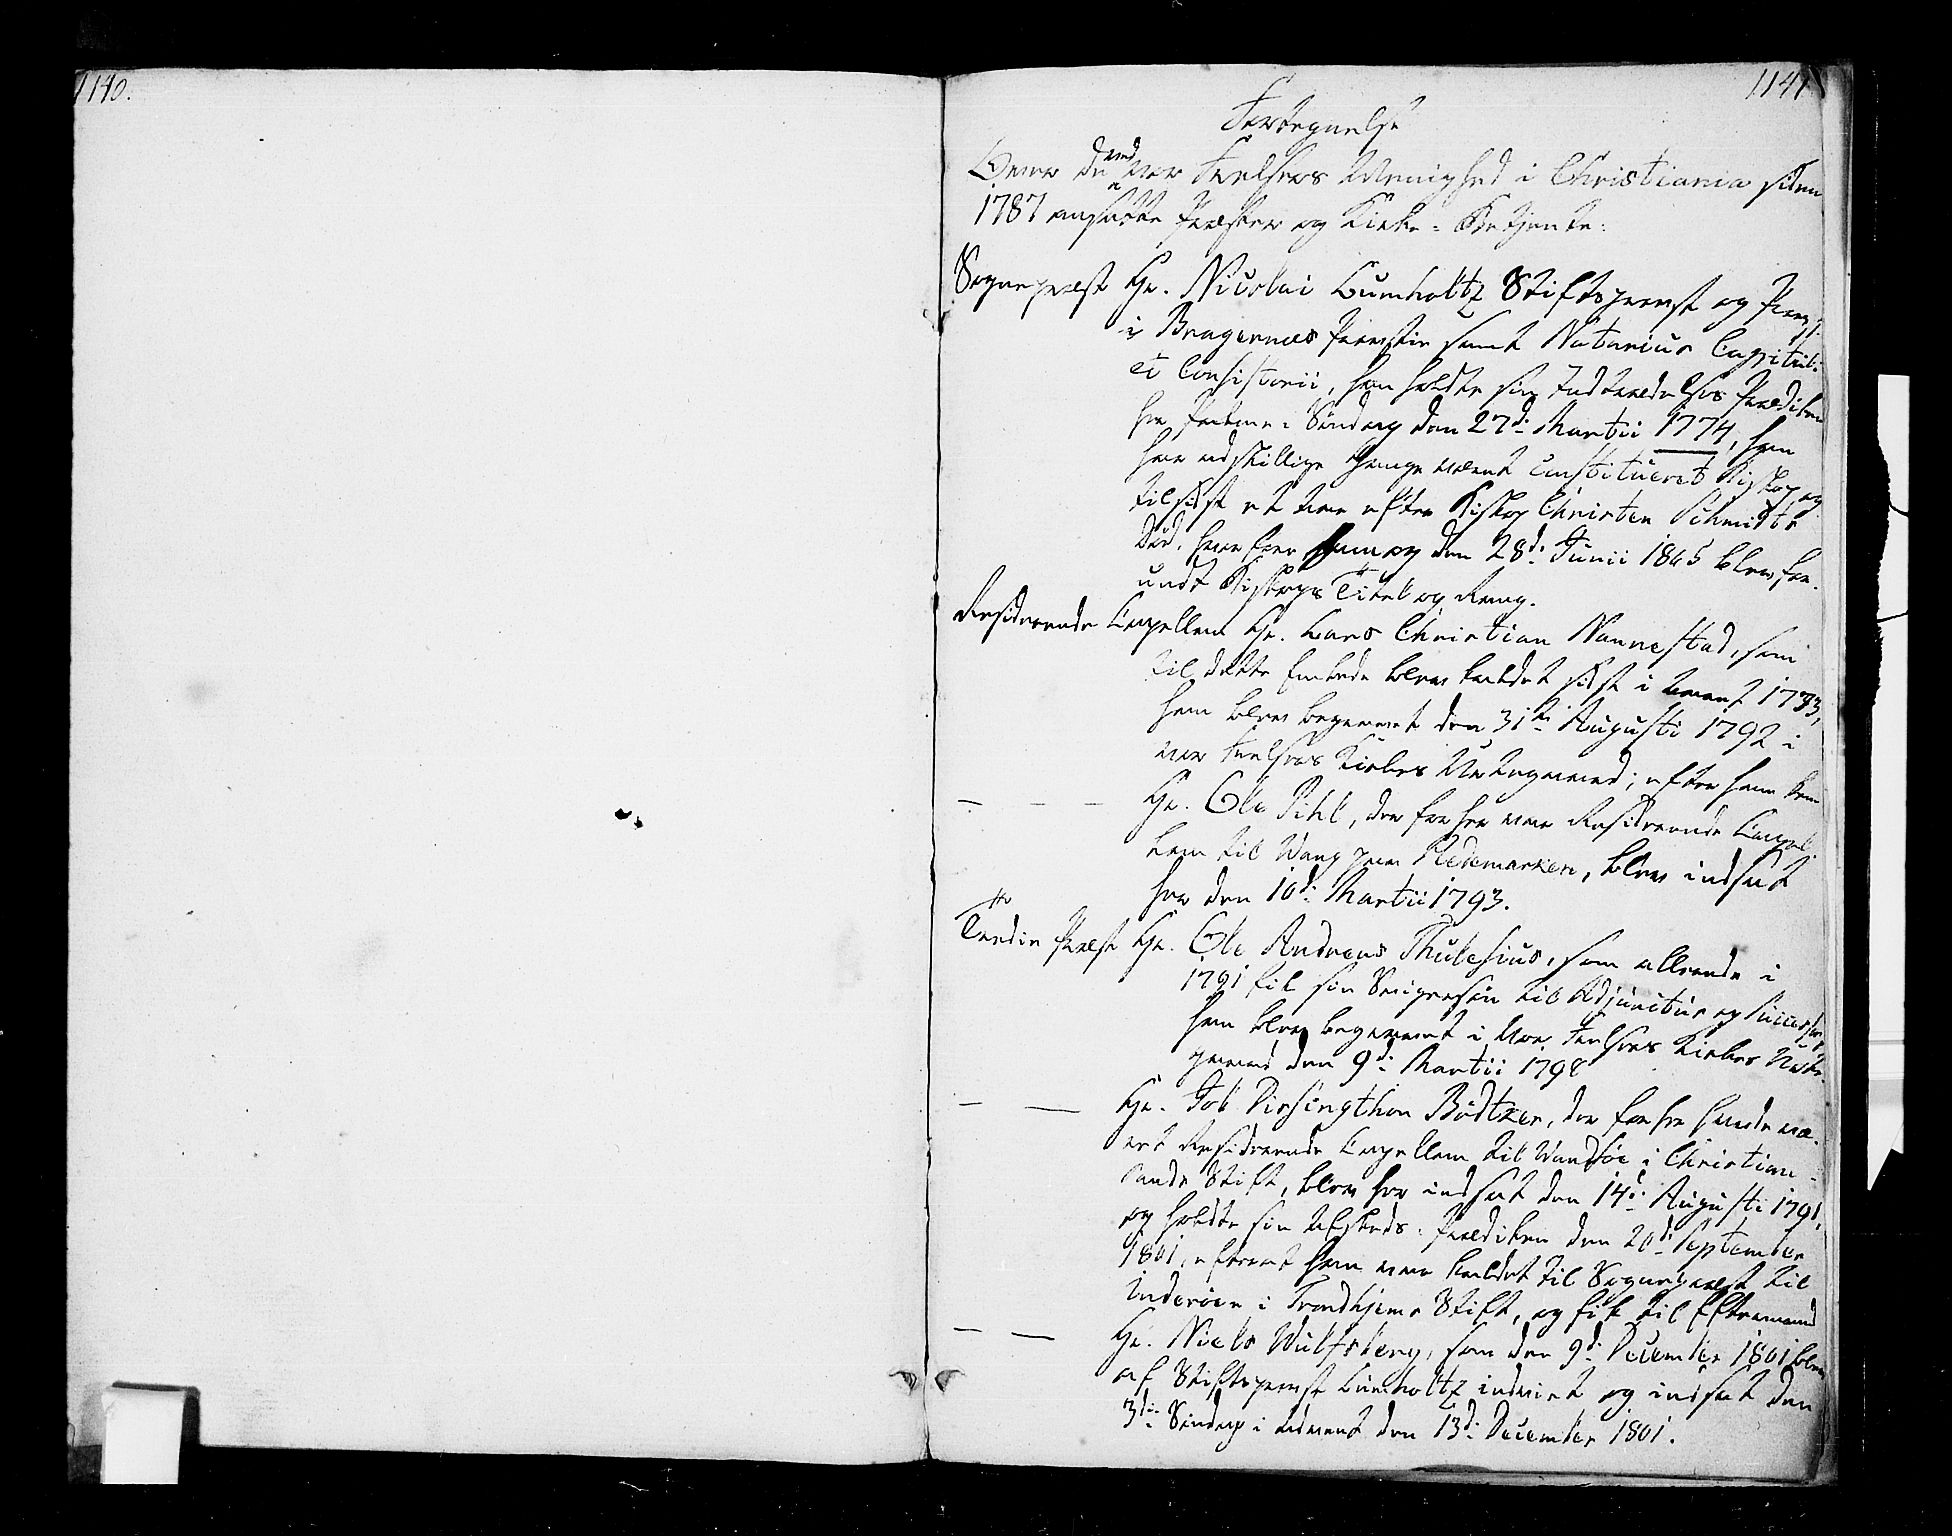 1140.
1141
Fortegnelse
Over de ved Vor Frelsers Menighed i Christiania siden
1787 ansatte Præster og Kirke-Betjente:
Sognepræst Hr. Nicolai Lumholtz Stiftsprovst og Provst
i Bragernæs Provstie samt Notarius Capituli
et Consistorii, han holdte sin Indtrædelses Prædiken
her Palme-Søndag den 27d: Martii 1774, han
har adskillige Gange været Constitueret Biskop, og
tilsidst et Aar efter Biskop Christen Schmidts
Død, hvorfor han og den 28d: Junii 1805 blev for-
undt Biskops Titel og Rang.
Residerende Capellan Hr. Lars Christian Nannestad, som
til dette Embede blev kaldet sidst i Aaret 1773,
han blev begravet den 31te Augusti 1792 i
vor Frelsers Kirkes Urtegaard; efter ham kom
— — — Hr. Ole Pihl, der før her var Residerende Capel-
lan til Wang paa Hedemarken, blev indsat
her den 10d: Martii 1793.
Tredie Præst Hr. Ole Andreas Thulesius, som allerede i
1791 fik sin Svigersøn til Adjunctus og Successor,
han blev begravet i Vor Frelsers Kirkes Urte-
gaard den 9d: Martii 1798
— — Hr. Job Dirsingthon Bödtker, der før her havde væ-
ret Residerende Capellan til Wandsöe i Christian-
sands Stift, blev her indsat den 14d: Augusti 1791,
og holdte sin Afskeds-Prædiken den 20d: September
1801, efterat han var kaldet til Sognepræst til
Inderöen i Trondhjems Stift, og fik til Eftermand
— — Hr. Niels Wulfsberg, som den 9d: December 1801 blev
af Stiftsprovst Lumholtz indviet og indsat den
3die Søndag i Advent den 13d: December 1801.